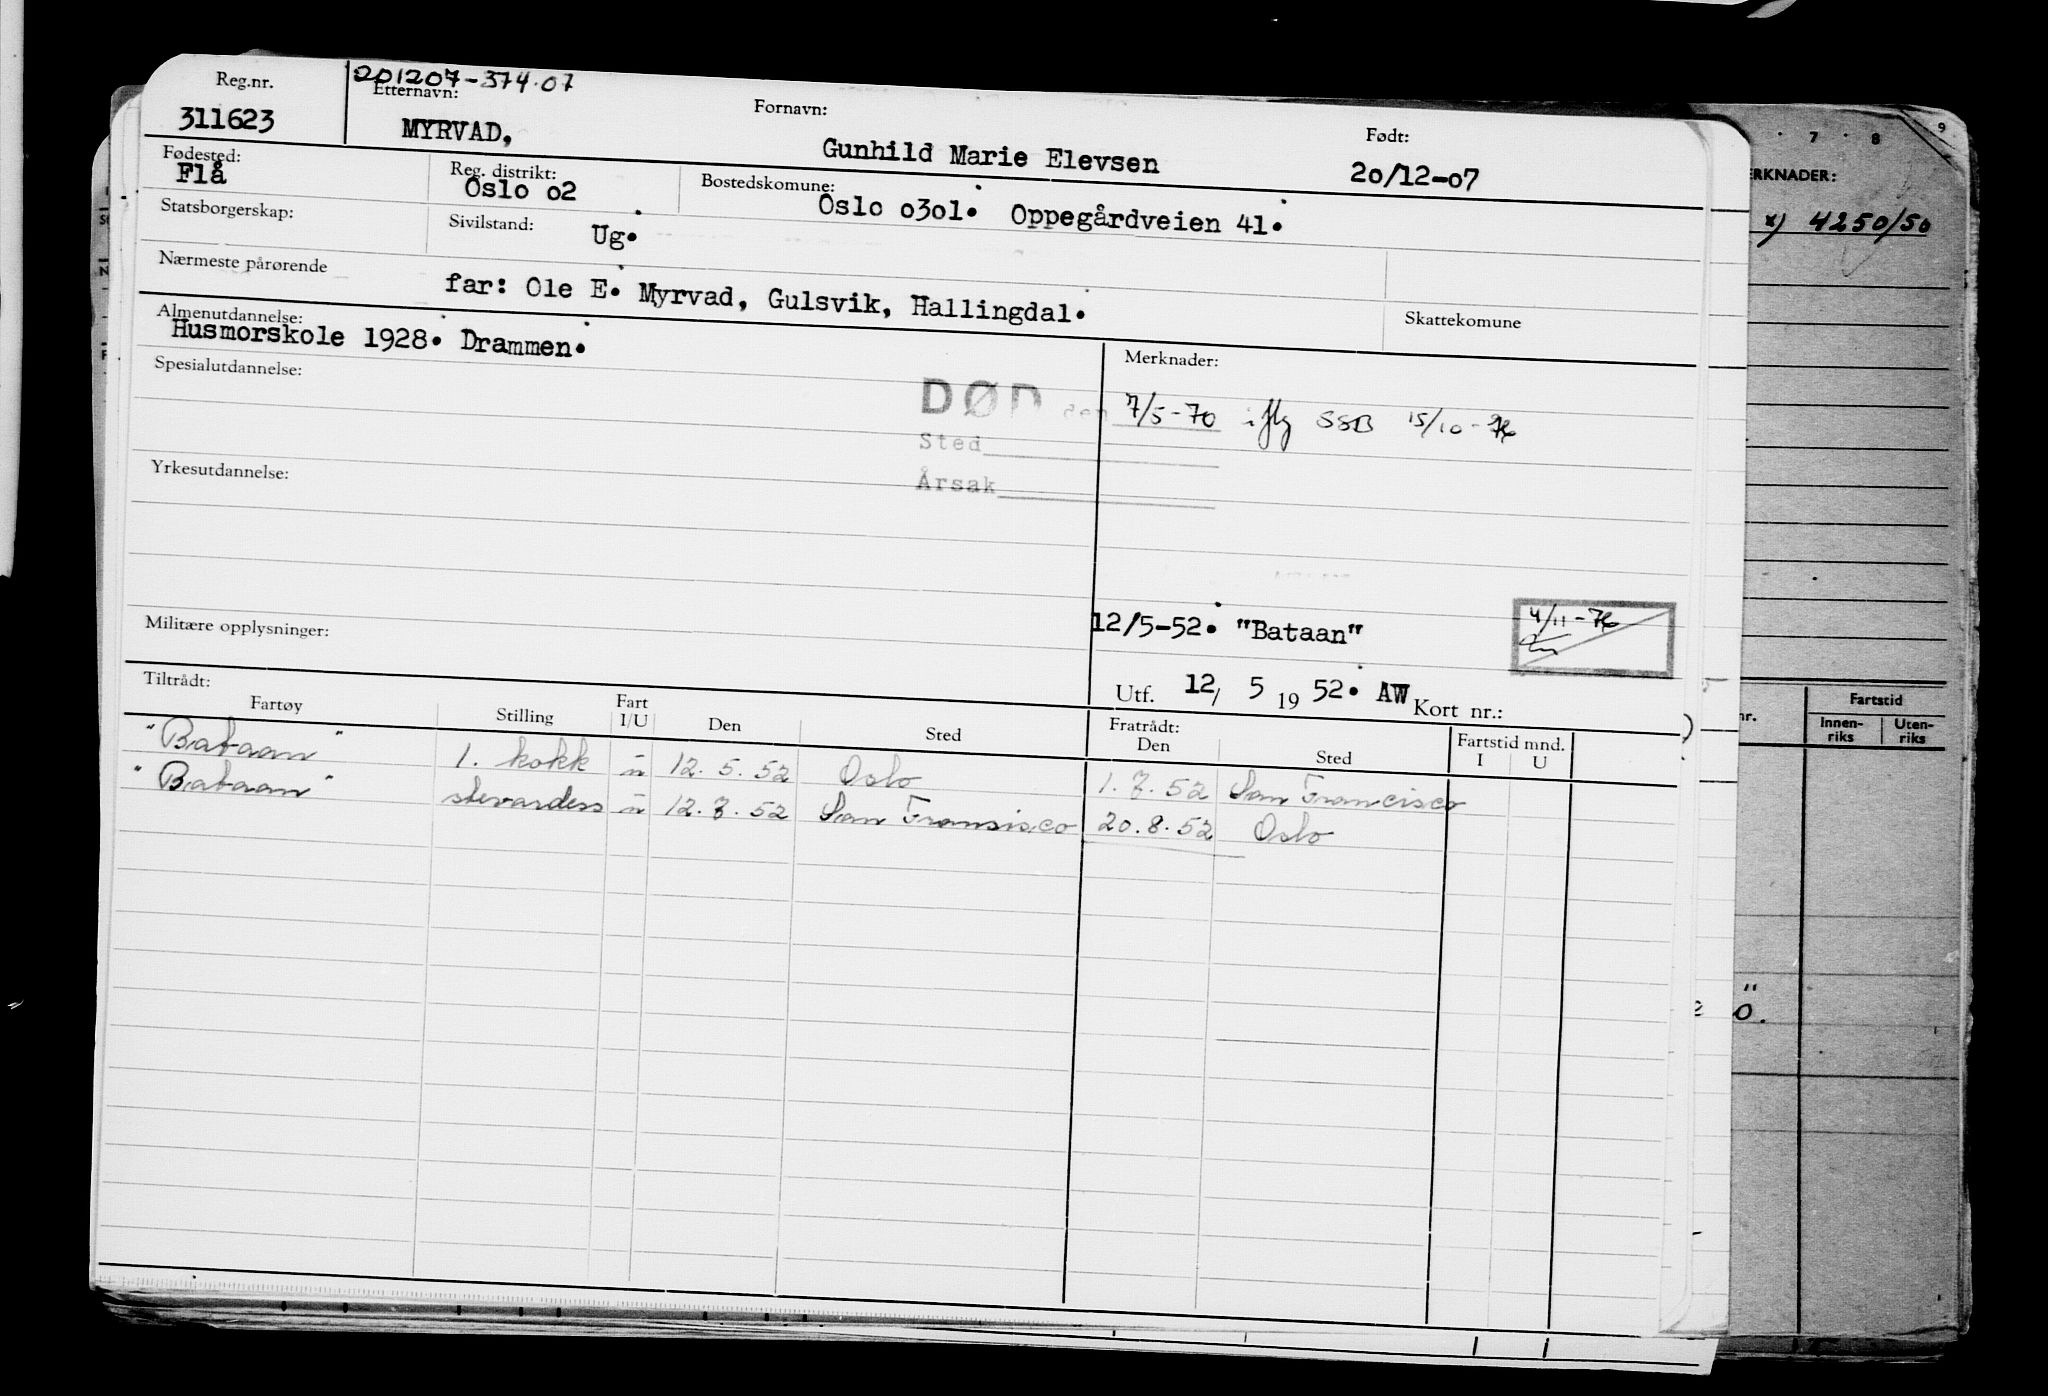 201207-374.07
Reg.nr. Etternavn: Fornavn: Født:
311623 MYRVAD, Gunhild Marie Elevsen 20/12-07
Fødested: Reg. distrikt: Bostedskomune:
Flå Oslo o2 Oslo o3o1. Oppegårdveien 41.
Statsborgerskap: Sivilstand: Ug.
Nærmeste pårørende far: Ole E. Myrvad, Gulsvik, Hallingdal.
Skattekomune
Almenutdannelse:
Husmorskole 1928. Drammen.
Spesialutdannelse: Merknader:
DØD den 7/5-70 iflg SSB 15/10-76
Sted
Årsak
Yrkesutdannelse:
Militære opplysninger: 12/5-52. "Bataan" 4/11-76
Utf. 12/ 5 19 52. AW Kort nr.:
Tiltrådt: Fratrådt:
Fartøy Stilling Fart I/U Den Sted Den Sted Fartstid mnd. I U
"Bataan" 1. kokk u 12.5.52 Oslo 1.7.52 San Francisco
"Bataan" stevardess u 12.7.52 San Fransisco 20.8.52 Oslo
7 8 9
ERKNADER:
x) 4250/50
nr. Fartstid
Innen-riks Uten-riks
"
0.